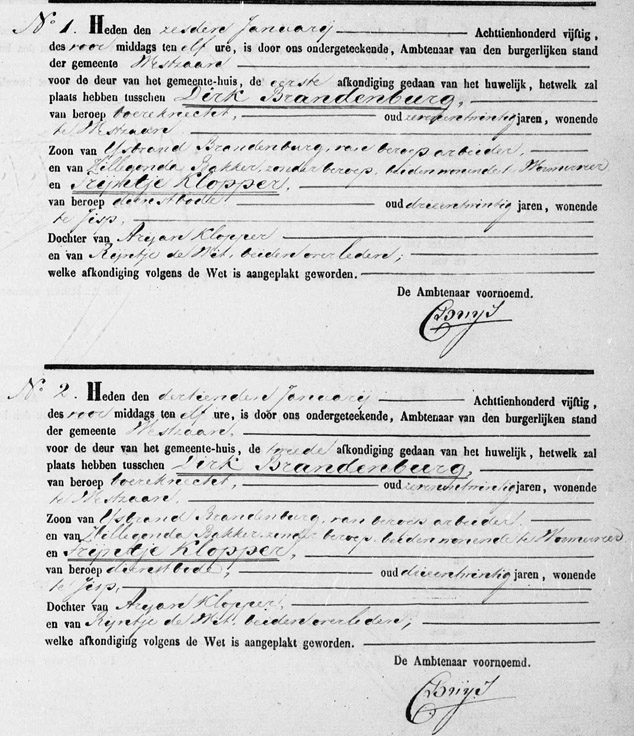 No. 1. Heden den zesden Januarij Achttienhonderd vijftig,
des voor middags ten elf ure, is door ons ondergeteekende, Ambtenaar van den burgerlijken stand
der gemeente Westzaan
voor de deur van het gemeente-huis, de eerste afkondiging gedaan van het huwelijk, hetwelk zal
plaats hebben tusschen Dirk Brandenburg,
van beroep boereknecht, oud zevenentwintig jaren, wonende
te Westzaan,
Zoon van IJsbrand Brandenburg, van beroep arbeider,
en van Zillegonda Bakker, zonder beroep, beiden wonende te Wormerveer
en Trijntje Klopper,
van beroep dienstbode oud drieentwintig jaren, wonende
te Jisp,
Dochter van Aryan Klopper
en van Rijntje de Wit, beiden overleden;
welke afkondiging volgens de Wet is aangeplakt geworden.
De Ambtenaar voornoemd.
No. 2. Heden den dertienden Januarij Achttienhonderd vijftig,
des voor middags ten elf ure, is door ons ondergeteekende, Ambtenaar van den burgerlijken stand
der gemeente Westzaan,
voor de deur van het gemeente-huis, de tweede afkondiging gedaan van het huwelijk, hetwelk zal
plaats hebben tusschen Dirk Brandenburg,
van beroep boereknecht, oud zevenentwintig jaren, wonende
te Westzaan,
Zoon van IJsbrand Brandenburg, van beroep arbeider,
en van Zillegonda Bakker, zonder beroep, beiden wonende te Wormerveer
en Trijntje Klopper,
van beroep dienstbode, oud drieentwintig jaren, wonende
te Jisp,
Dochter van Aryan Klopper,
en van Rijntje de Wit, beiden overleden;
welke afkondiging volgens de Wet is aangeplakt geworden.
De Ambtenaar voornoemd.